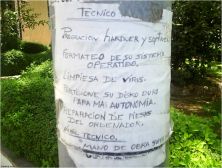 TECNICO
HARDUER Y SOFTWER
FORMATEO DE SU SISTEMA
OPERATIBO.
LIMPIESA DE VIRUS.
SU DISKO DURO
PARA MAS AUTONOMIA.
REPARACION DE PIESAS
DEL ORDENADOR.
TECNICO.
MANO DE OBRA